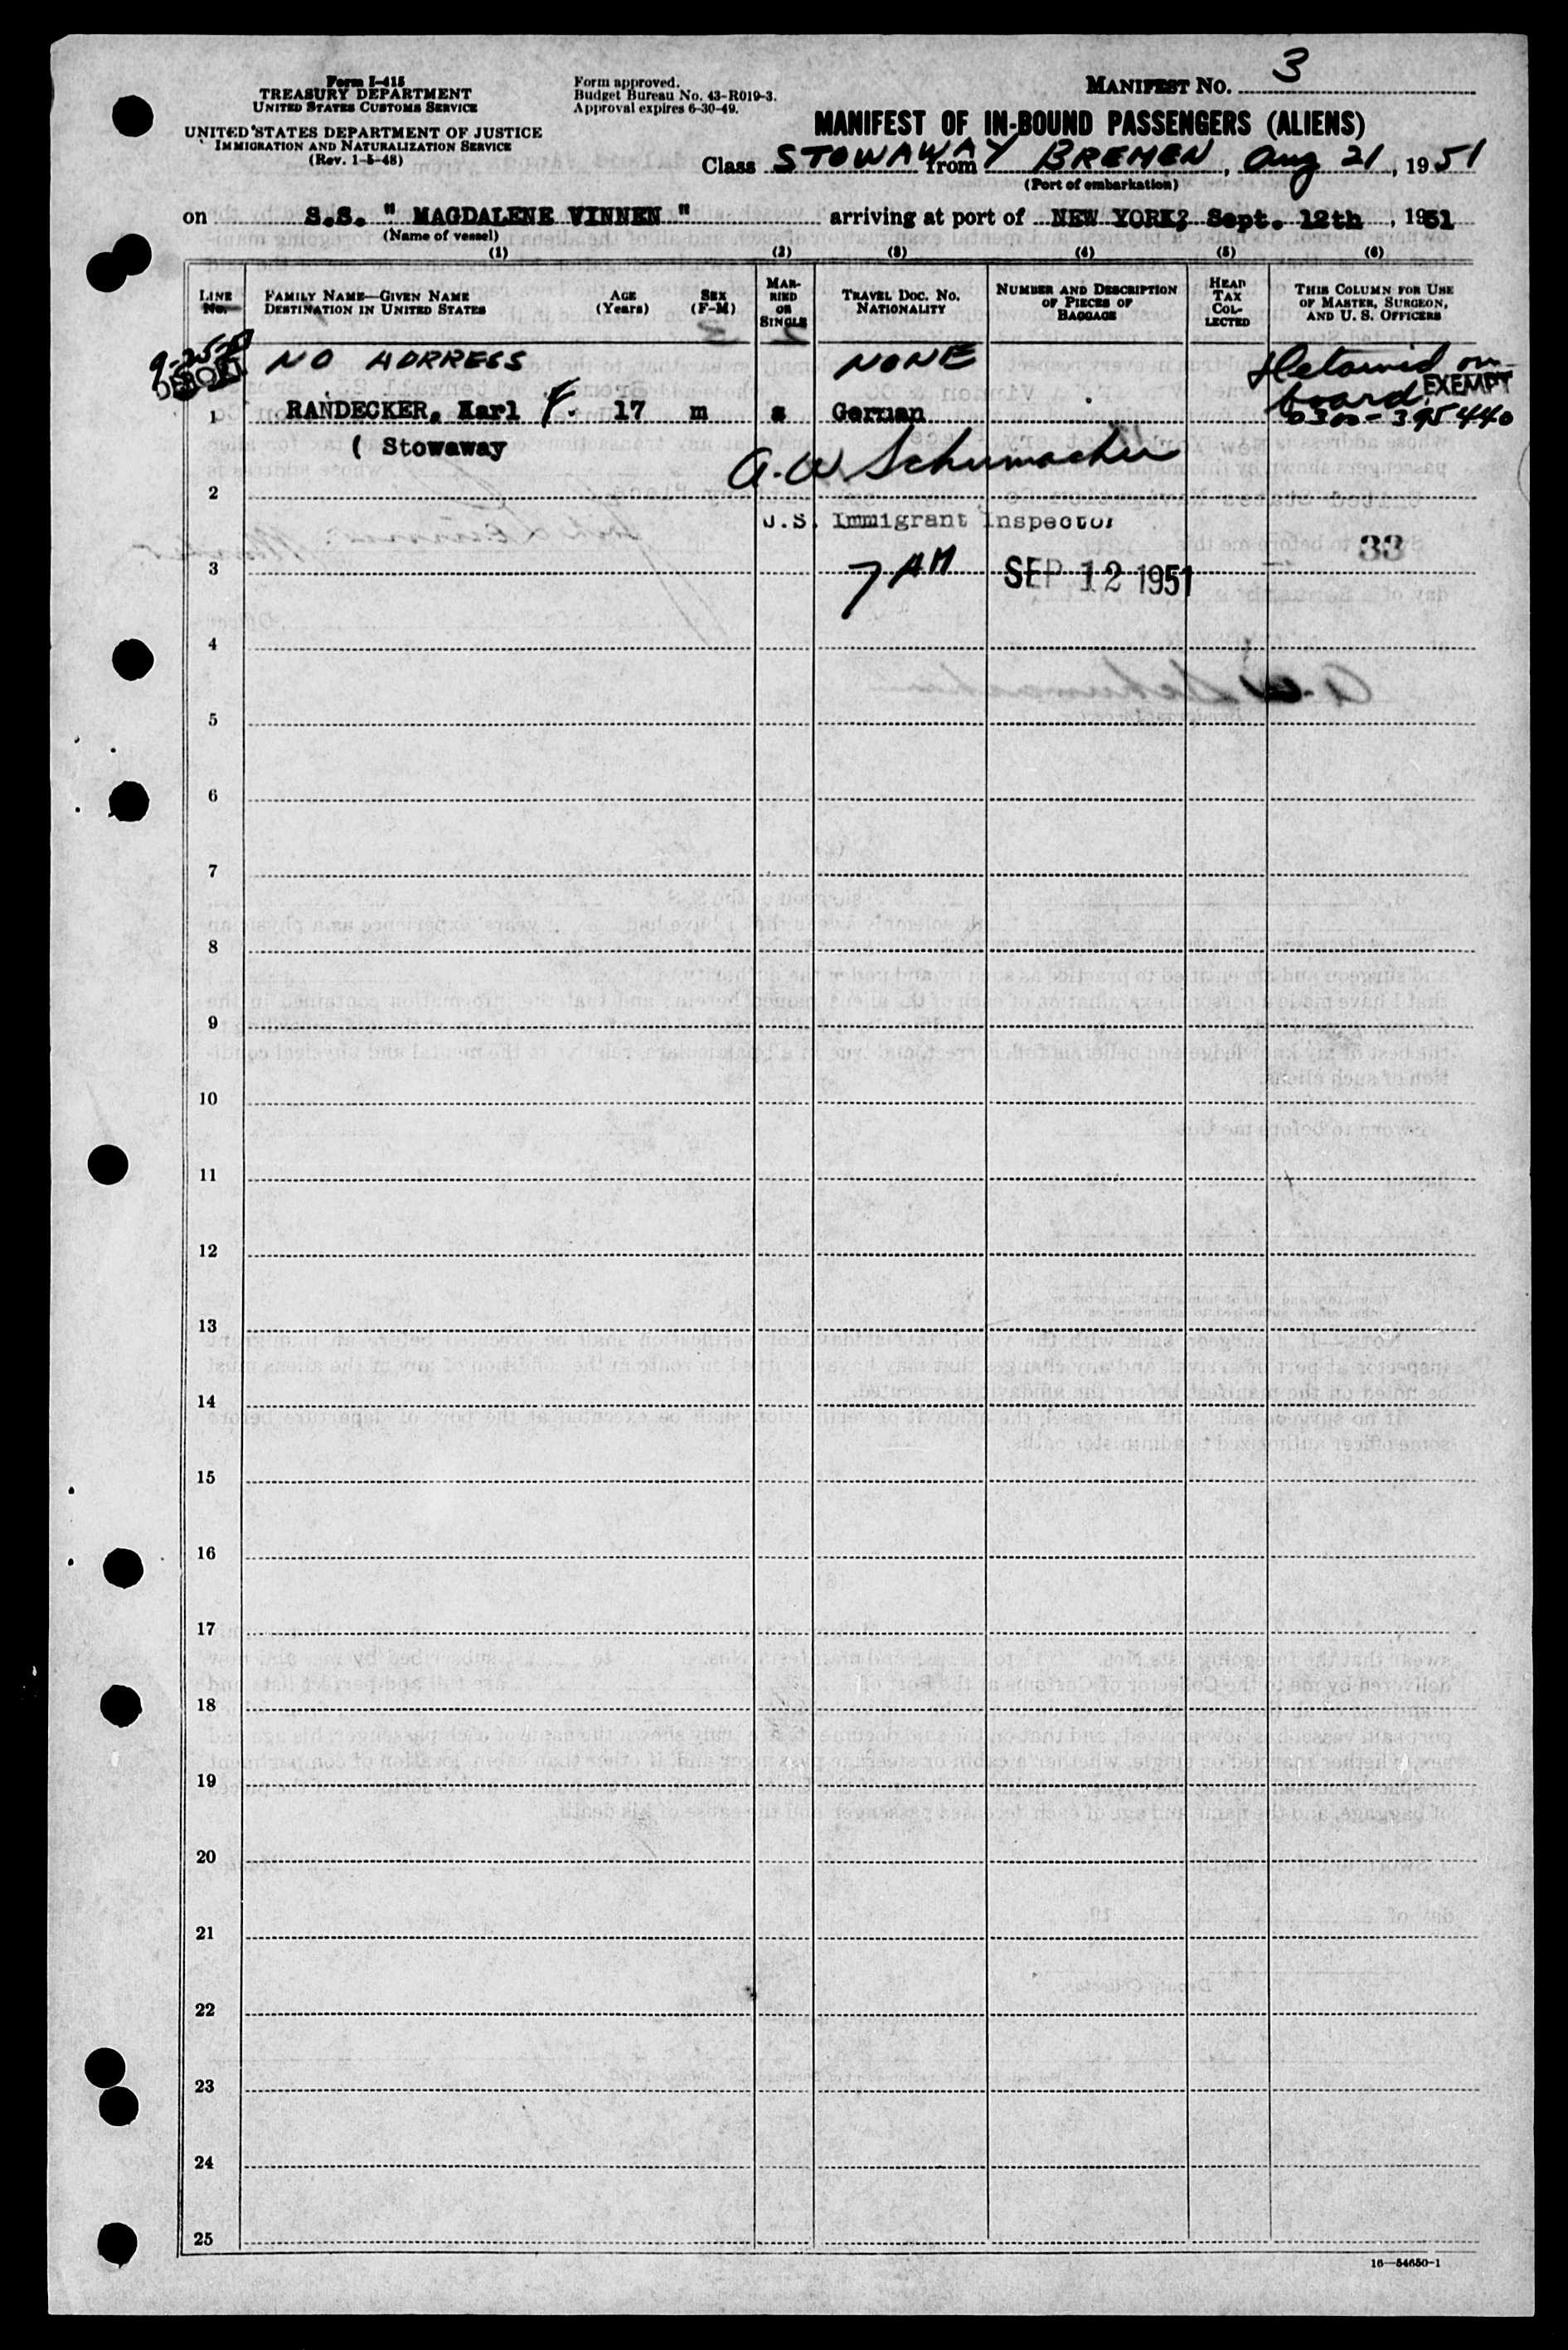 Form I-415
TREASURY DEPARTMENT
UNITED STATES CUSTOMS SERVICE
UNITED STATES DEPARTMENT OF JUSTICE
IMMIGRATION AND NATURALIZATION SERVICE
(Rev. 1-5-48)
Form approved.
Budget Bureau No. 43-R019-3.
Approval expires 6-30-49.
MANIFEST NO. 3
MANIFEST OF IN-BOUND PASSENGERS (ALIENS)
Class STOWAWAY from BREMEN, Aug 21, 1951
(Port of embarkation)
on S.S. " MAGDALENE VINNEN " arriving at port of NEW YORK, Sept. 12th, 1951
(Name of vessel)
(1) (2) (3) (4) (5) (6)
LINE No.
FAMILY NAME—GIVEN NAME
DESTINATION IN UNITED STATES
AGE (Years)
SEX (F-M)
MARRIED OR SINGLE
TRAVEL DOC. NO.
NATIONALITY
NUMBER AND DESCRIPTION OF PIECES OF BAGGAGE
HEAD TAX COLLECTED
THIS COLUMN FOR USE OF MASTER, SURGEON, AND U. S. OFFICERS
NO ADRRESS NONE Detained on
board. EXEMPT
1 RANDECKER, Karl F. 17 m s German 0300-395440
( Stowaway
A. W Schumacher
2
U.S. Immigrant Inspector
33
3 7 AM SEP 12 1951
4
5
6
7
8
9
10
11
12
13
14
15
16
17
18
19
20
21
22
23
24
25
16—54650-1